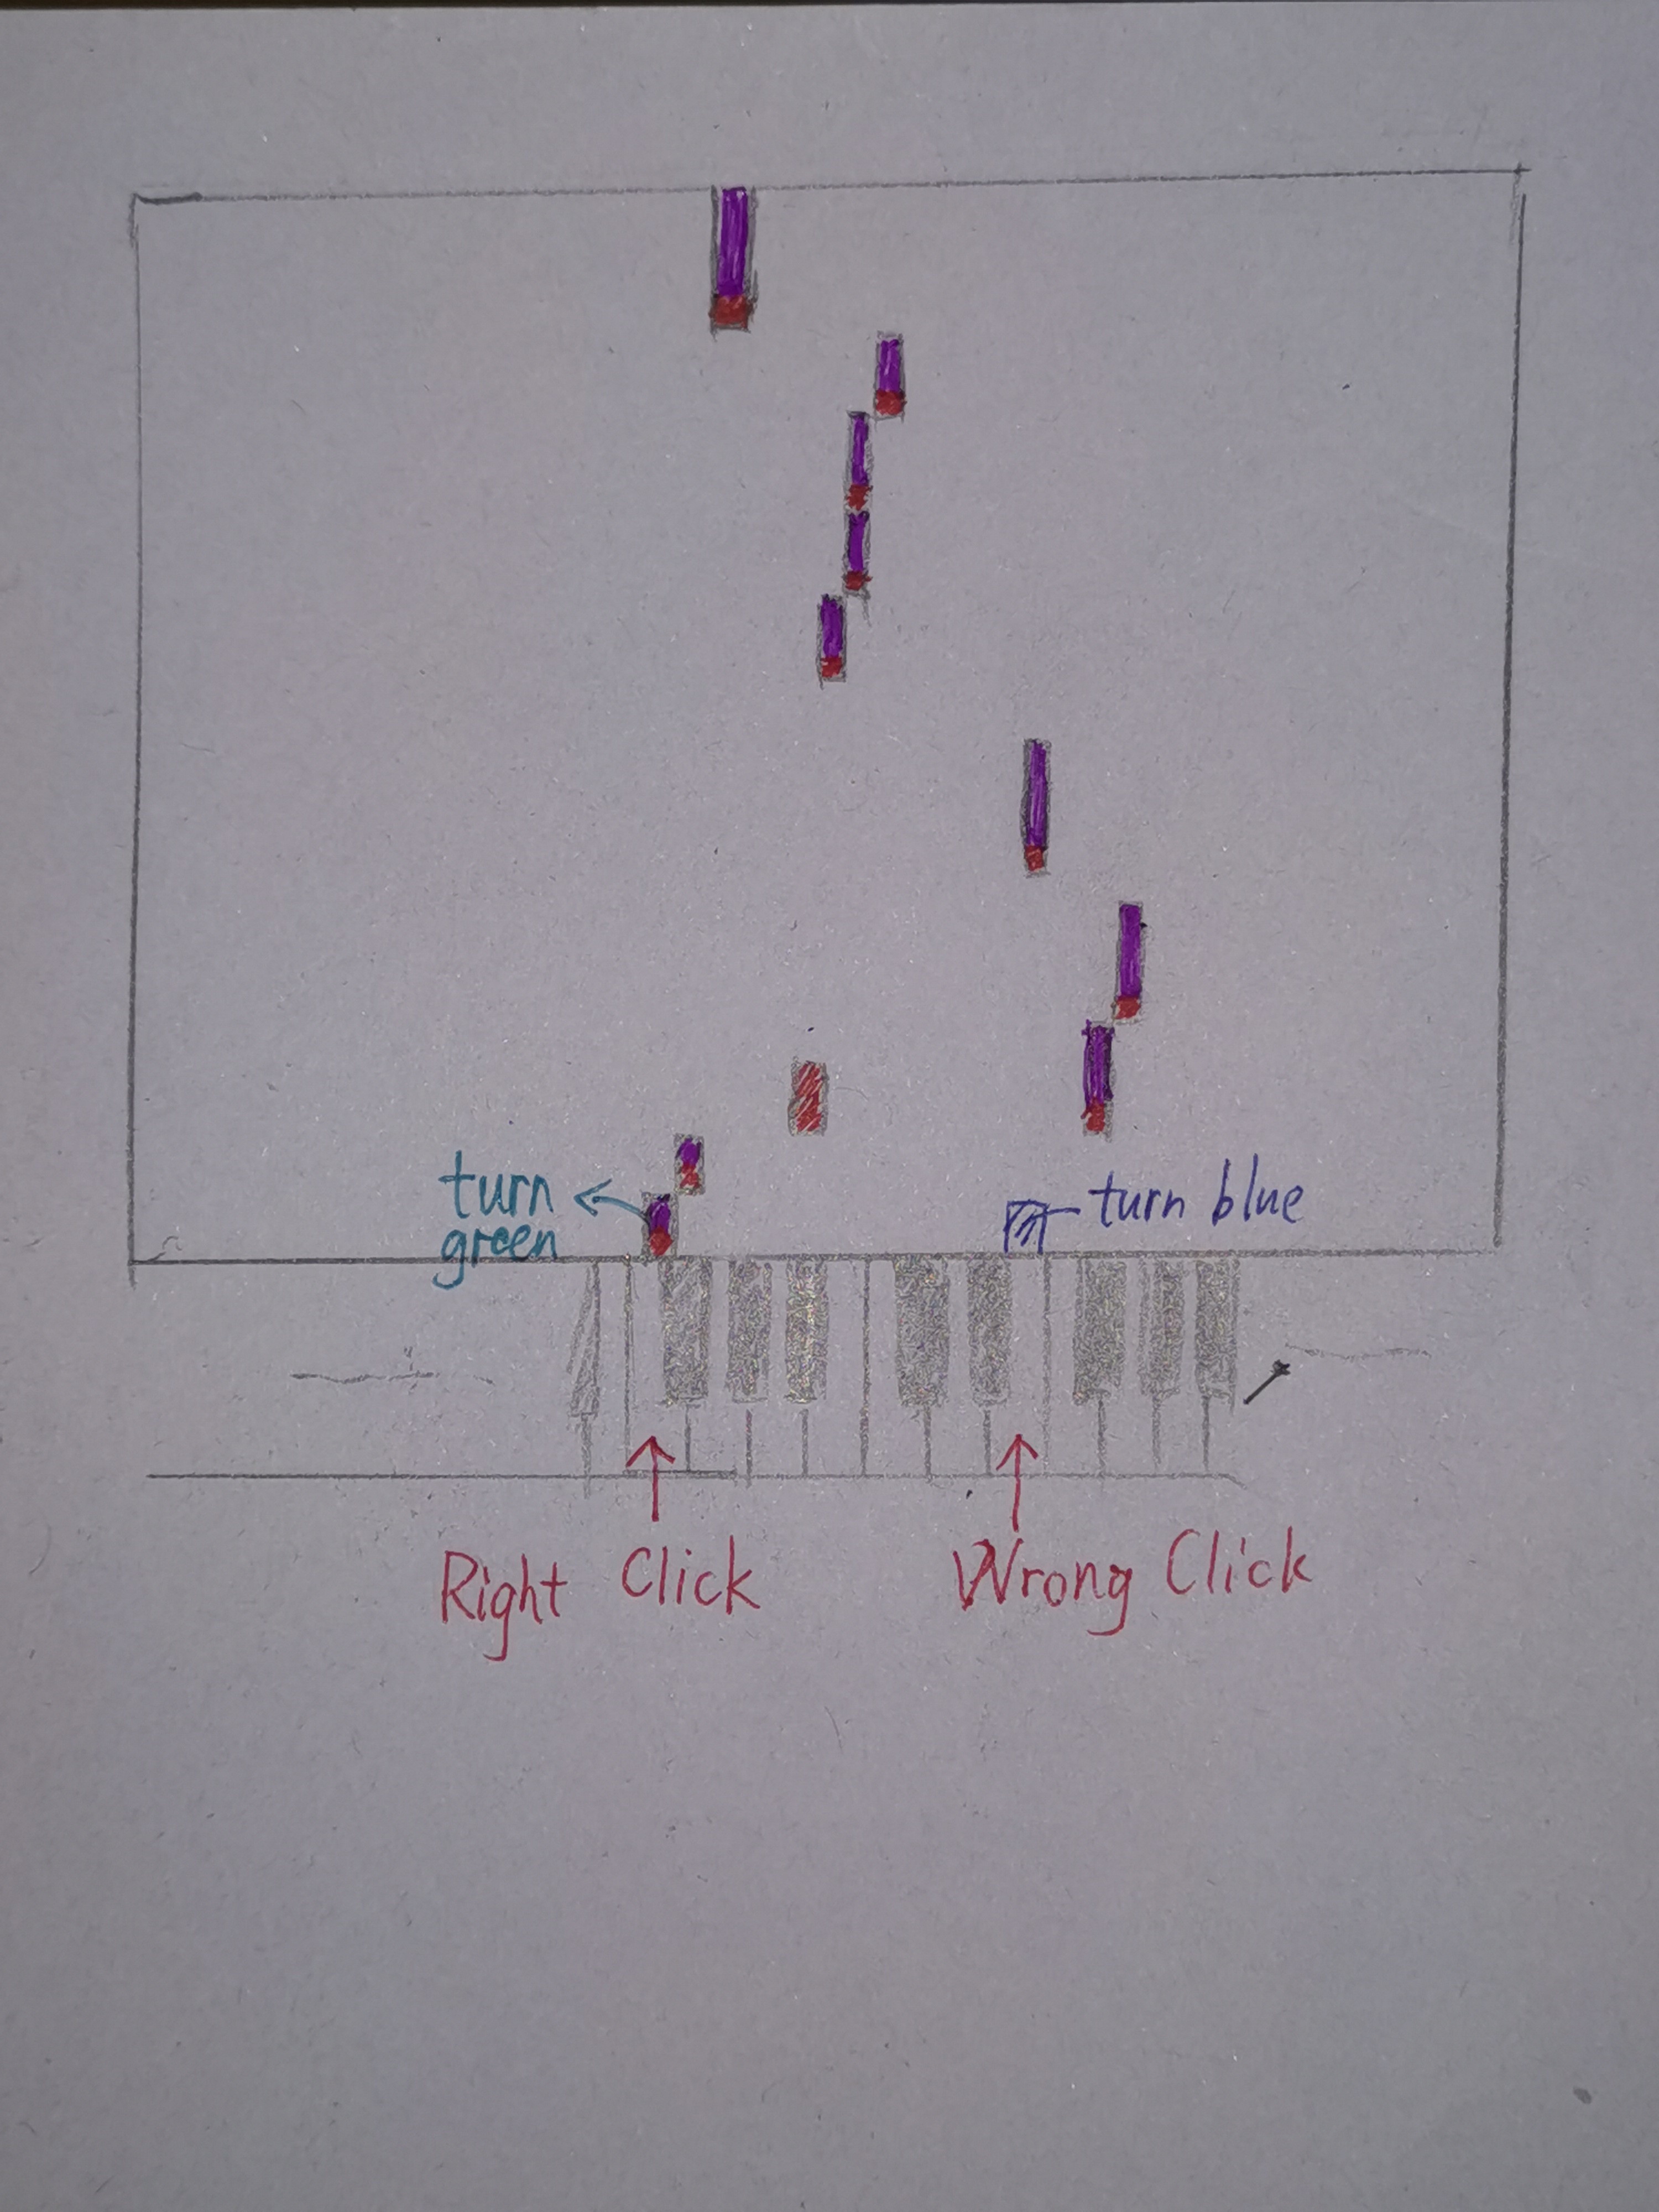 turn
green
turn blue
Right Click
Wrong Click